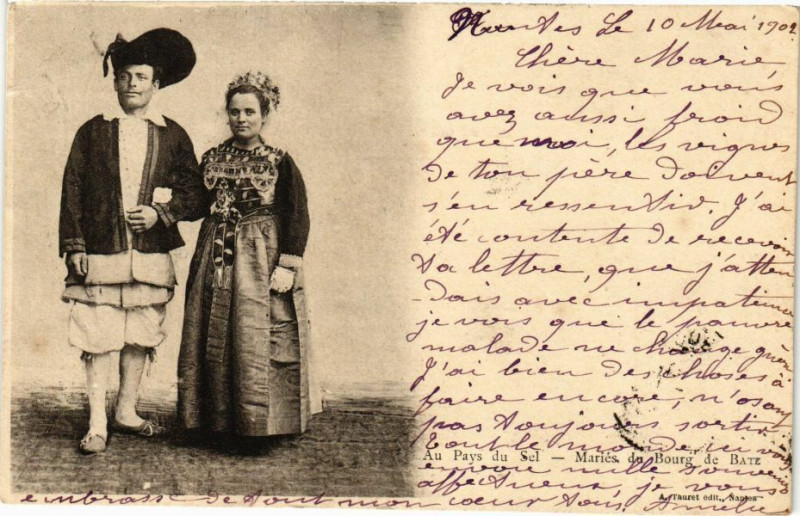 Nantes Le 10 Mai 1902
Chère Marie,
Je vois que vous
avez aussi froid
que moi, les vignes
de ton père doivent
s'en ressentir. J'ai
été contente de recevoir
ta lettre, que j'atten
-dais avec impatience
je vois que le pauvre
malade ne change guère
J'ai bien des choses à
faire encore, n'osant
pas toujours sortir
Tout le monde ici vous
Au Pays du Sel — Mariés du Bourg de BATZ
envoie mille souvenirs
affectueux, je vous
A. Vauret édit., Nantes
embrasse de tout mon cœur tous, Amélie